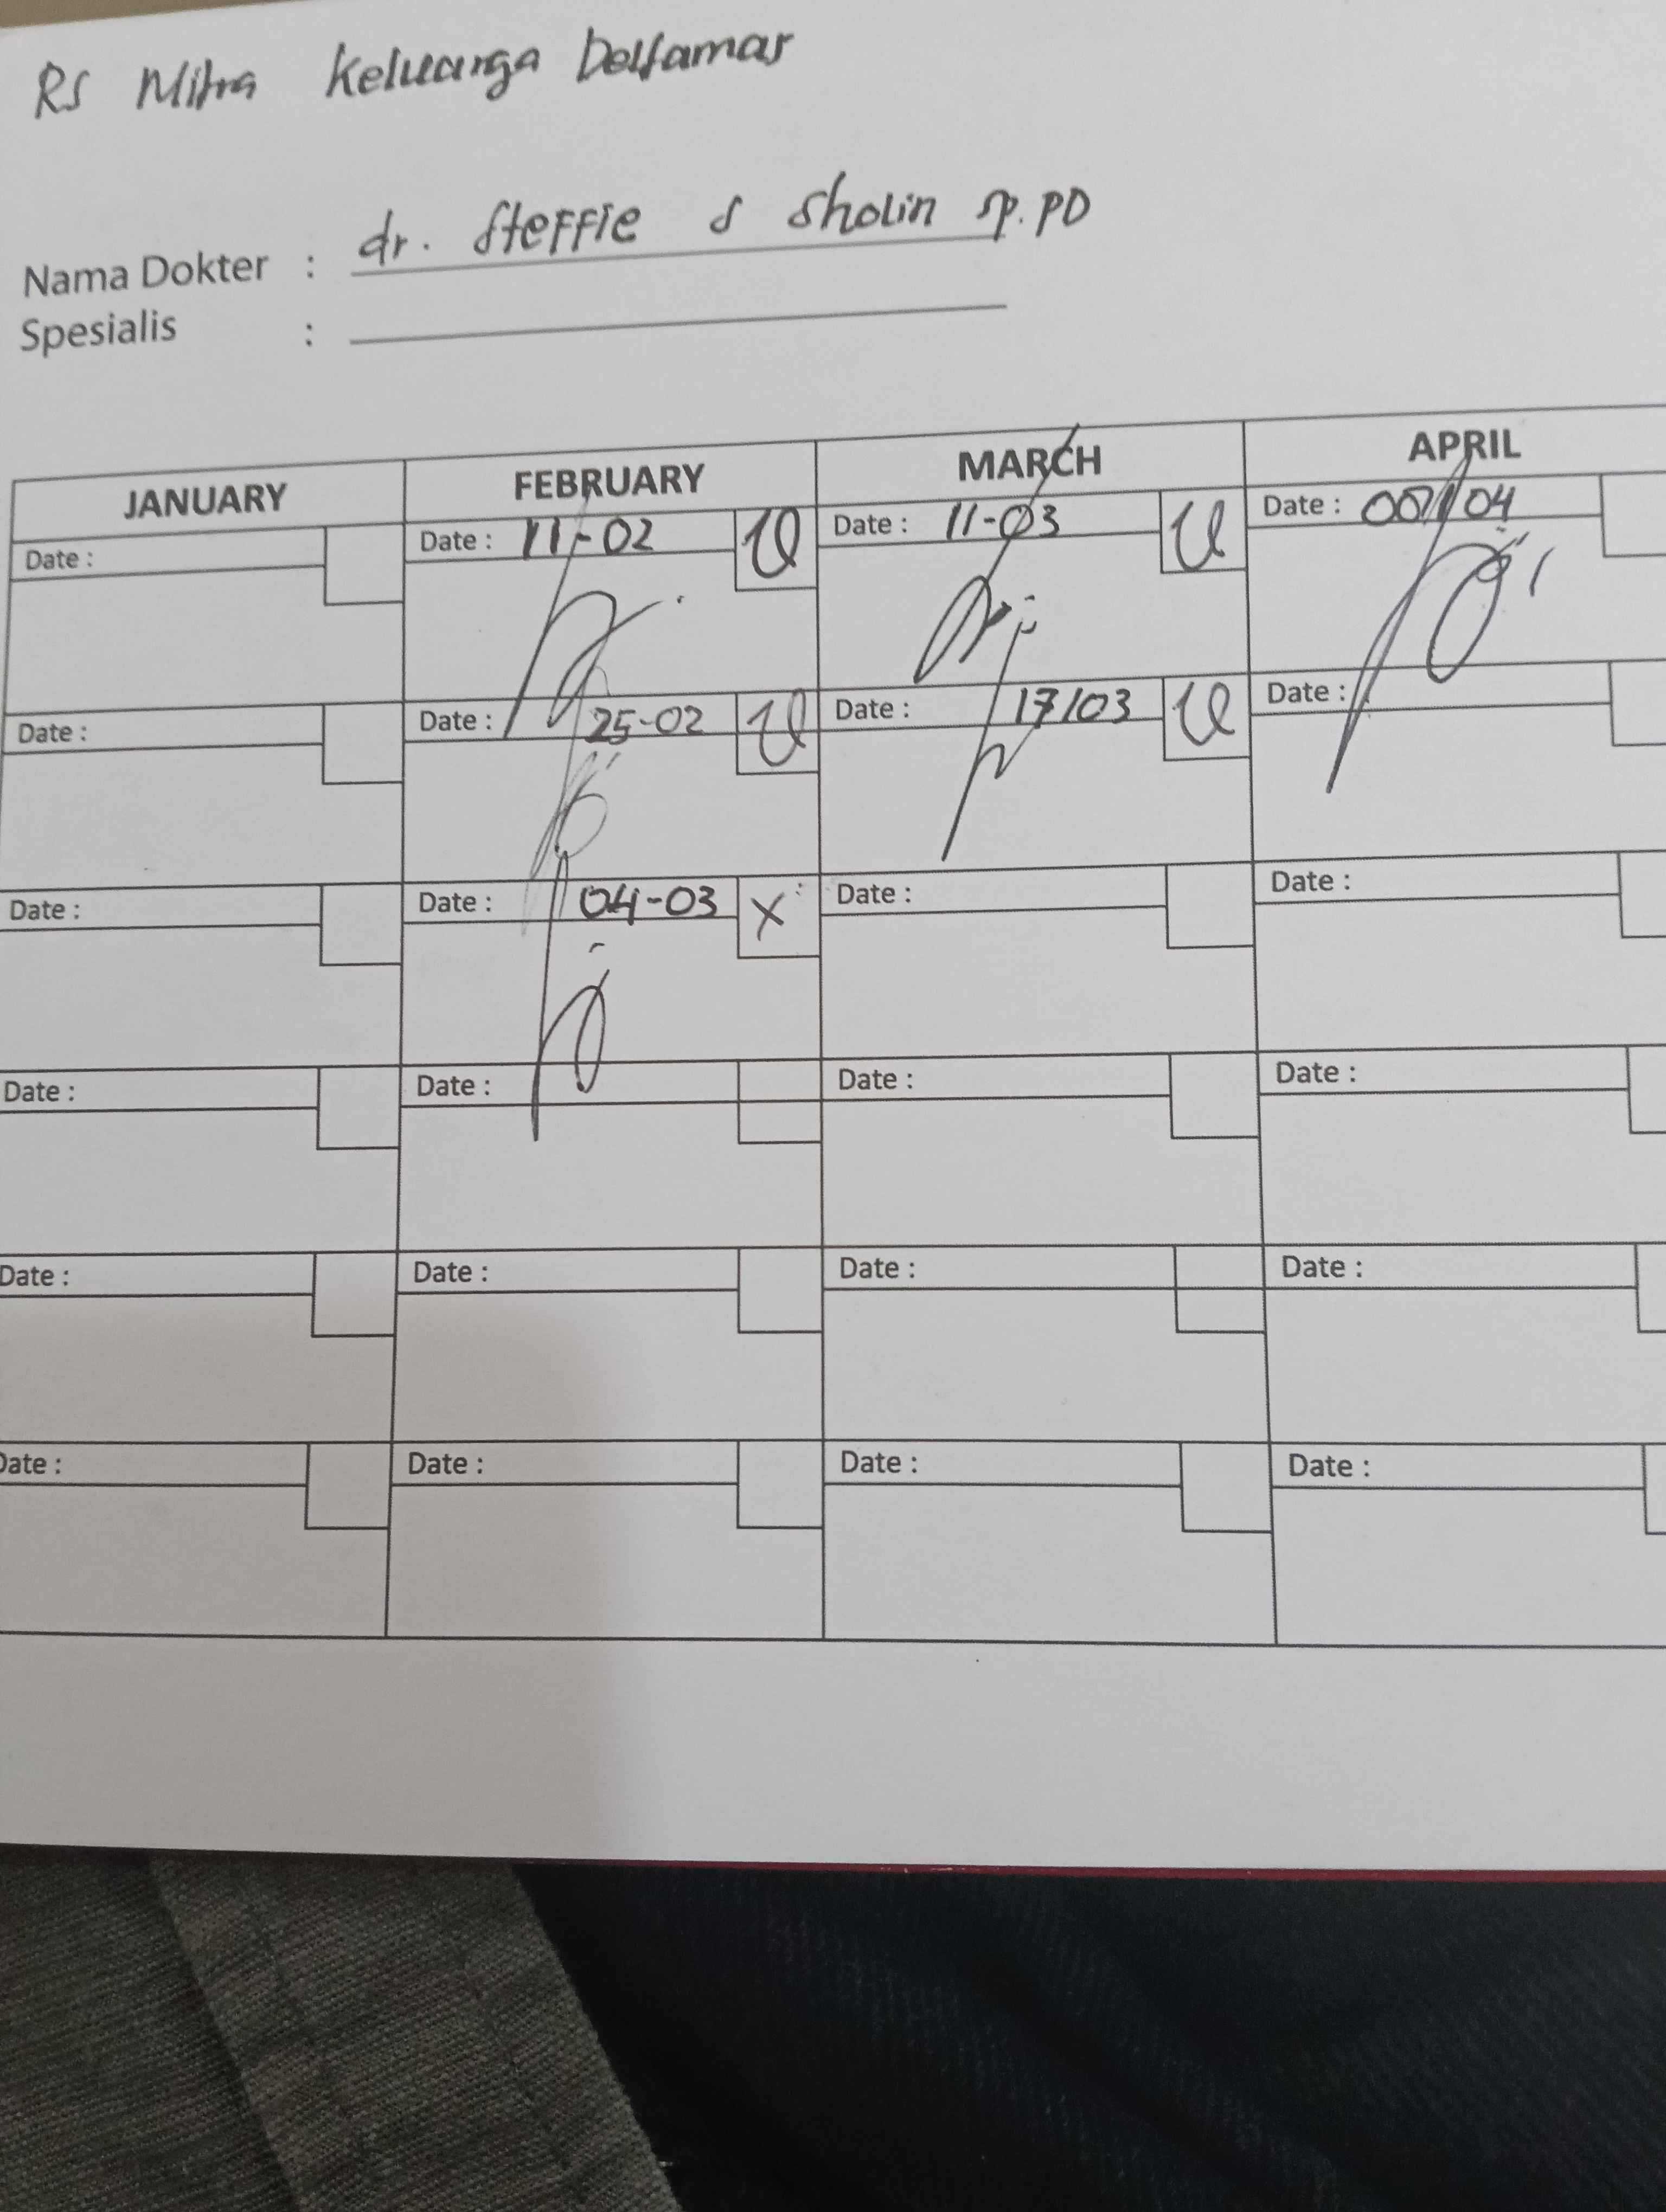 RS Mitra Keluarga Deltamas
Nama Dokter : dr. Steffie S Sholin Sp.PD
Spesialis :
JANUARY FEBRUARY MARCH APRIL
Date : Date : 11-02 Date : 11-03 Date : /04
Date : Date : 25-02 Date : 17/03 Date :
Date : Date : 04-03 X Date : Date :
Date : Date : Date : Date :
Date : Date : Date : Date :
Date : Date : Date : Date :